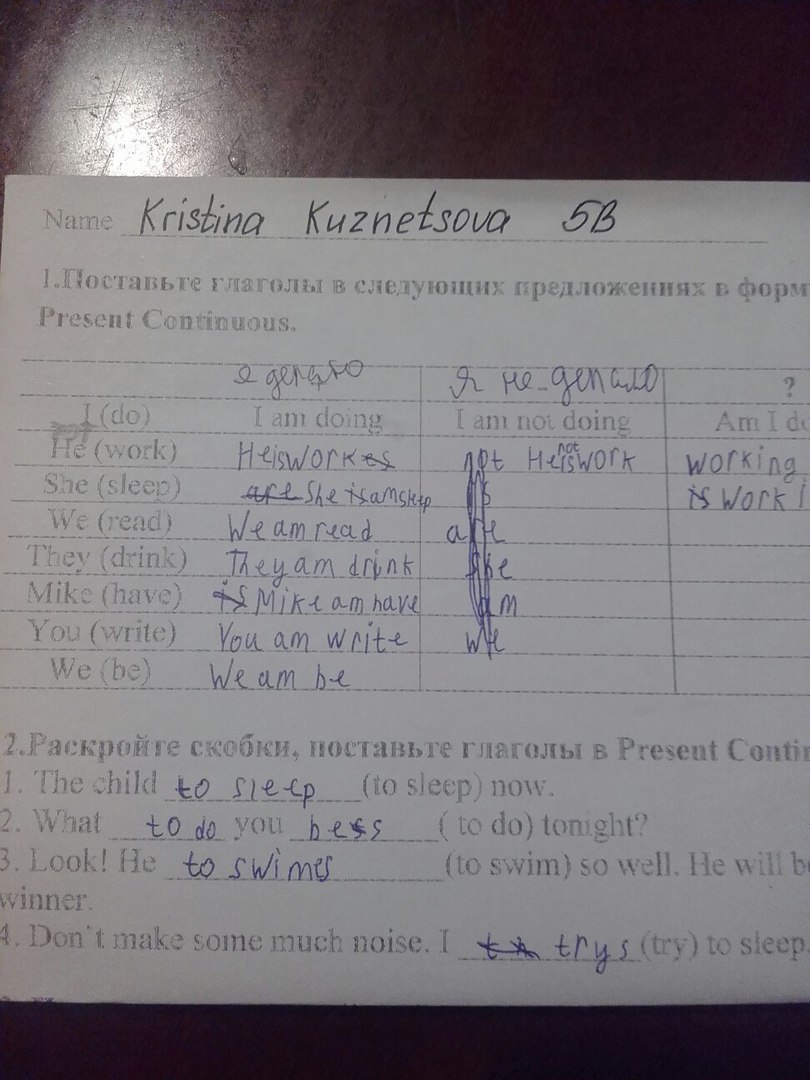 Name Kristina Kuznetsova 5B
1.Поставьте глаголы в следующих предложениях в форм
Present Continuous.
я делаю Я не делаю ?
I (do) I am doing I am not doing Am I do
He (work) He is work not He is not work working
She (sleep) She is am sleep is is work i
We (read) We am read are
They (drink) They am drink she
Mike (have) is Mike am have am
You (write) You am write we
We (be) We am be
2.Раскройте скобки, поставьте глаголы в Present Contin
1. The child to sleep (to sleep) now.
2. What to do you bess ( to do) tonight?
3. Look! He to swimes (to swim) so well. He will be
winner.
4. Don't make some much noise. I trys (try) to sleep.